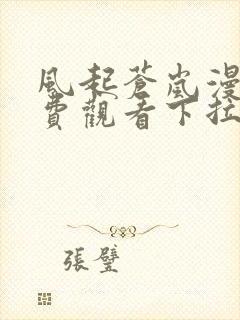 風起蒼嵐漫
費觀看下拉
張璧